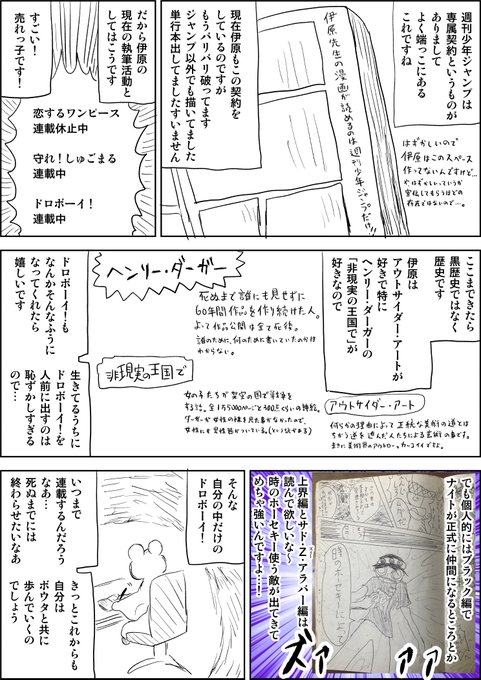 週刊少年ジャンプは
専属契約というものが
ありまして
よく端っこにある
これですね
伊原先生の漫画が読めるのは週刊少年ジャンプだけ!!
はずかしいので
伊原はこのスペース
作ってないんですけど…。
現在伊原もこの契約を
しているのですが
もうバリバリ破ってます
ジャンプ以外でも描いてました
単行本出してましたすいません
だから伊原の
現在の執筆活動と
してはこうです
恋するワンピース
連載休止中
守れ!しゅごまる
連載中
ドロボーイ!
連載中
すごい!
売れっ子です!
ここまできたら
黒歴史ではなく
歴史です
伊原は
アウトサイダー・アートが
好きで特に
ヘンリー・ダーガーの
「非現実の王国で」が
好きなので
アウトサイダー・アート
何らかの理由によって正統な美術の道とは
ちがう道を進んだ人たちによる芸術の事です。
まさに美術界のアウトロー。カッコイイですよ。
ヘンリー・ダーガー
死ぬまで誰にも見せずに
60年間作品を作り続けた人。
よって作品公開は全て死後。
誰のために、何のために書いていたのかは
わからない。
非現実の王国で
女の子たちが架空の国で戦争を
する話。全1万5000ページと300点くらいの挿絵。
ダーガーが女性の裸を見た事がなかったので、
女性にも男性器がついている。(という説がある)
ドロボーイ!も
なんかそんなふうに
なってくれたら
嬉しいです
生きてるうちに
ドロボーイ!を
人前に出すのは
恥ずかしすぎる
ので…
でも個人的にはブラック編で
ナイトが正式に仲間になるところとか
上界編とサド・Z・アラバー編は
読んで欲しいな~
時のホーセキー使う敵が出てきて
めちゃ強いんですよ…!
ズァ
ァァ
そんな
自分の中だけの
ドロボーイ!
いつまで
連載するんだろう
なあ…
死ぬまでには
終わらせたいなあ
きっとこれからも
自分は
ボウタと共に
歩んでいくの
でしょう